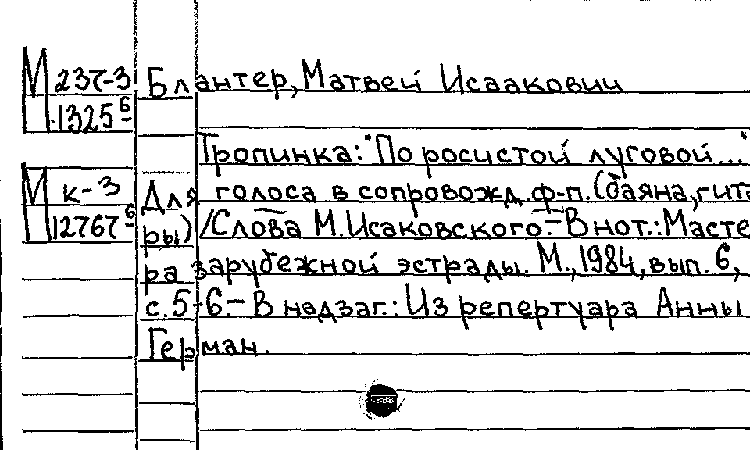 М 237-3 Блантер, Матвей Исаакович
1325 6
Тропинка: "По росистой луговой..."
М к-3 Для голоса в сопровожд. ф-п. (баяна, гита
12767 6 ры) /Слова М. Исаковского.- В нот.: Масте
ра зарубежной эстрады. М., 1984, вып. 6,
с. 5-6.- В надзаг.: Из репертуара Анны
Герман.